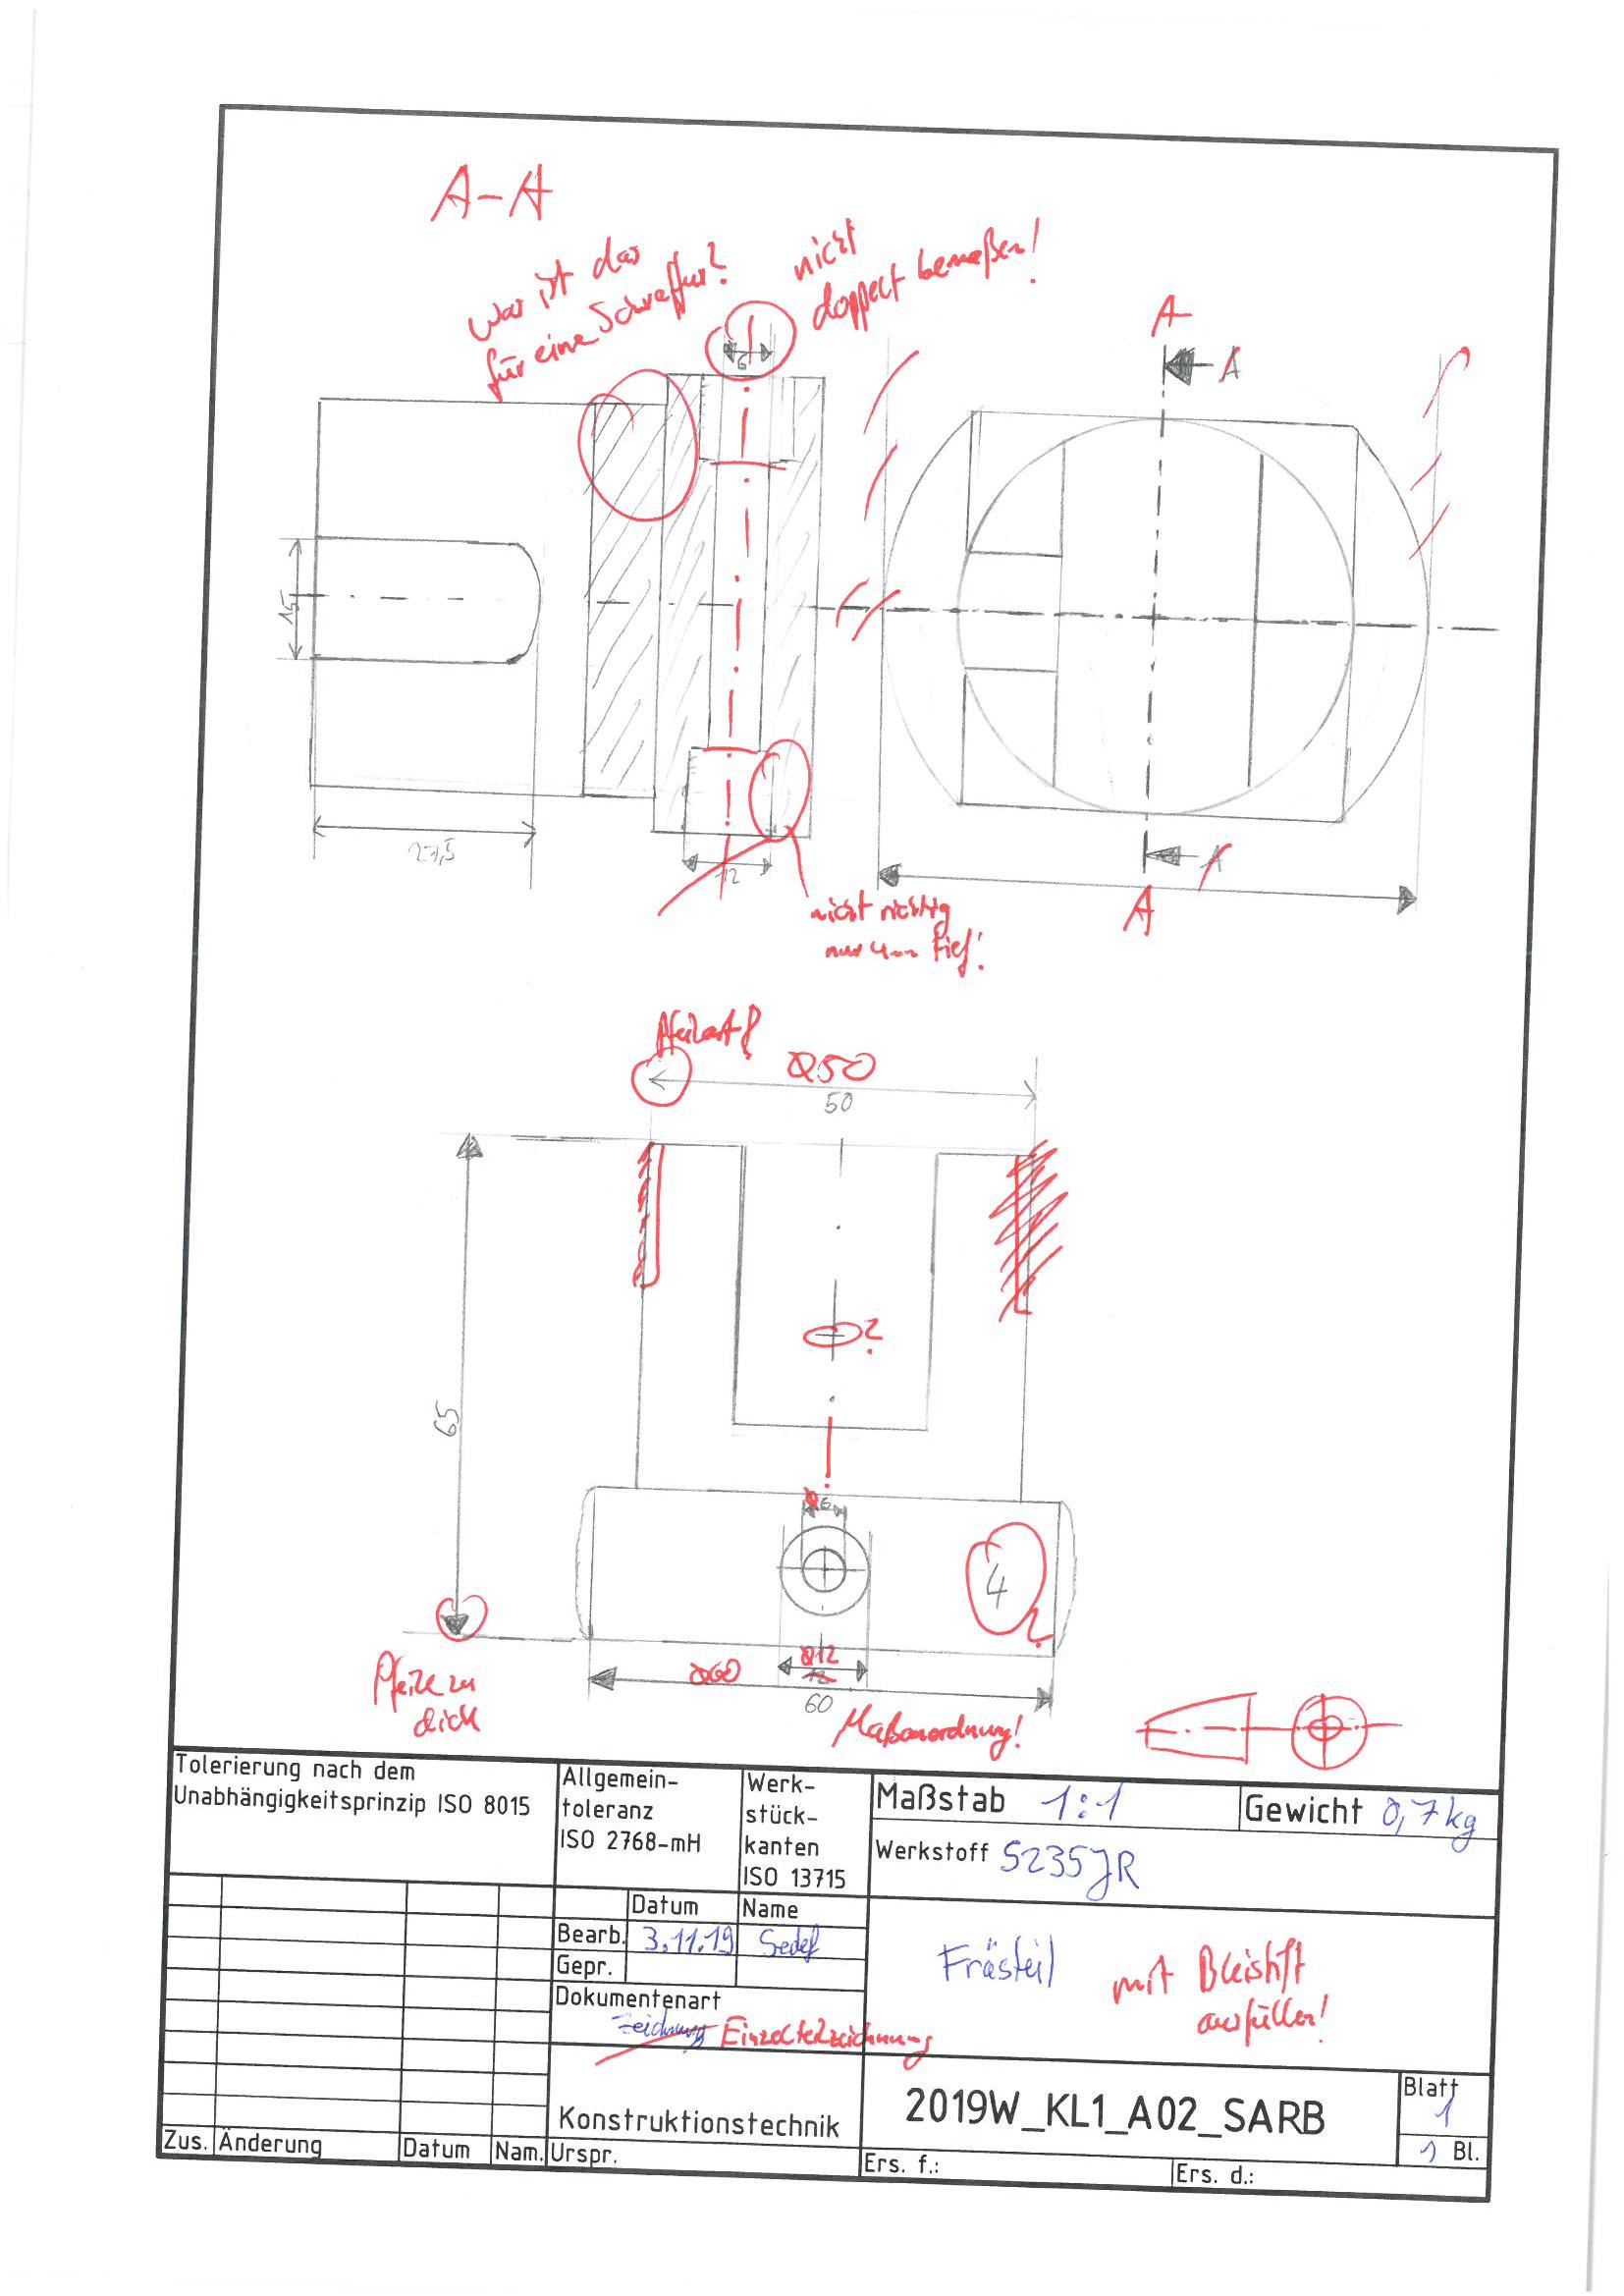 A-A
Was ist das
für eine Schraffur?
nicht
doppelt bemaßen!
6
A
A
15
27,5
12
nicht richtig
nur 4mm tief!
A
A
Pfeilart?
Ø50
50
?
65
Ø6
4
?
Ø12
12
Ø60
60
Pfeile zu
dick
Maßanordnung!
Tolerierung nach dem
Unabhängigkeitsprinzip ISO 8015
Allgemein-
toleranz
ISO 2768-mH
Werk-
stück-
kanten
ISO 13715
Maßstab 1:1
Gewicht 0,7kg
Werkstoff S235JR
Datum Name
Bearb. 3.11.19 Sedef
Gepr.
Dokumentenart
Zeichnung Einzelteilzeichnung
Frästeil
mit Bleistift
ausfüllen!
Konstruktionstechnik
2019W_KL1_A02_SARB
Blatt
1
1 Bl.
Zus. Änderung Datum Nam. Urspr.
Ers. f.: Ers. d.: